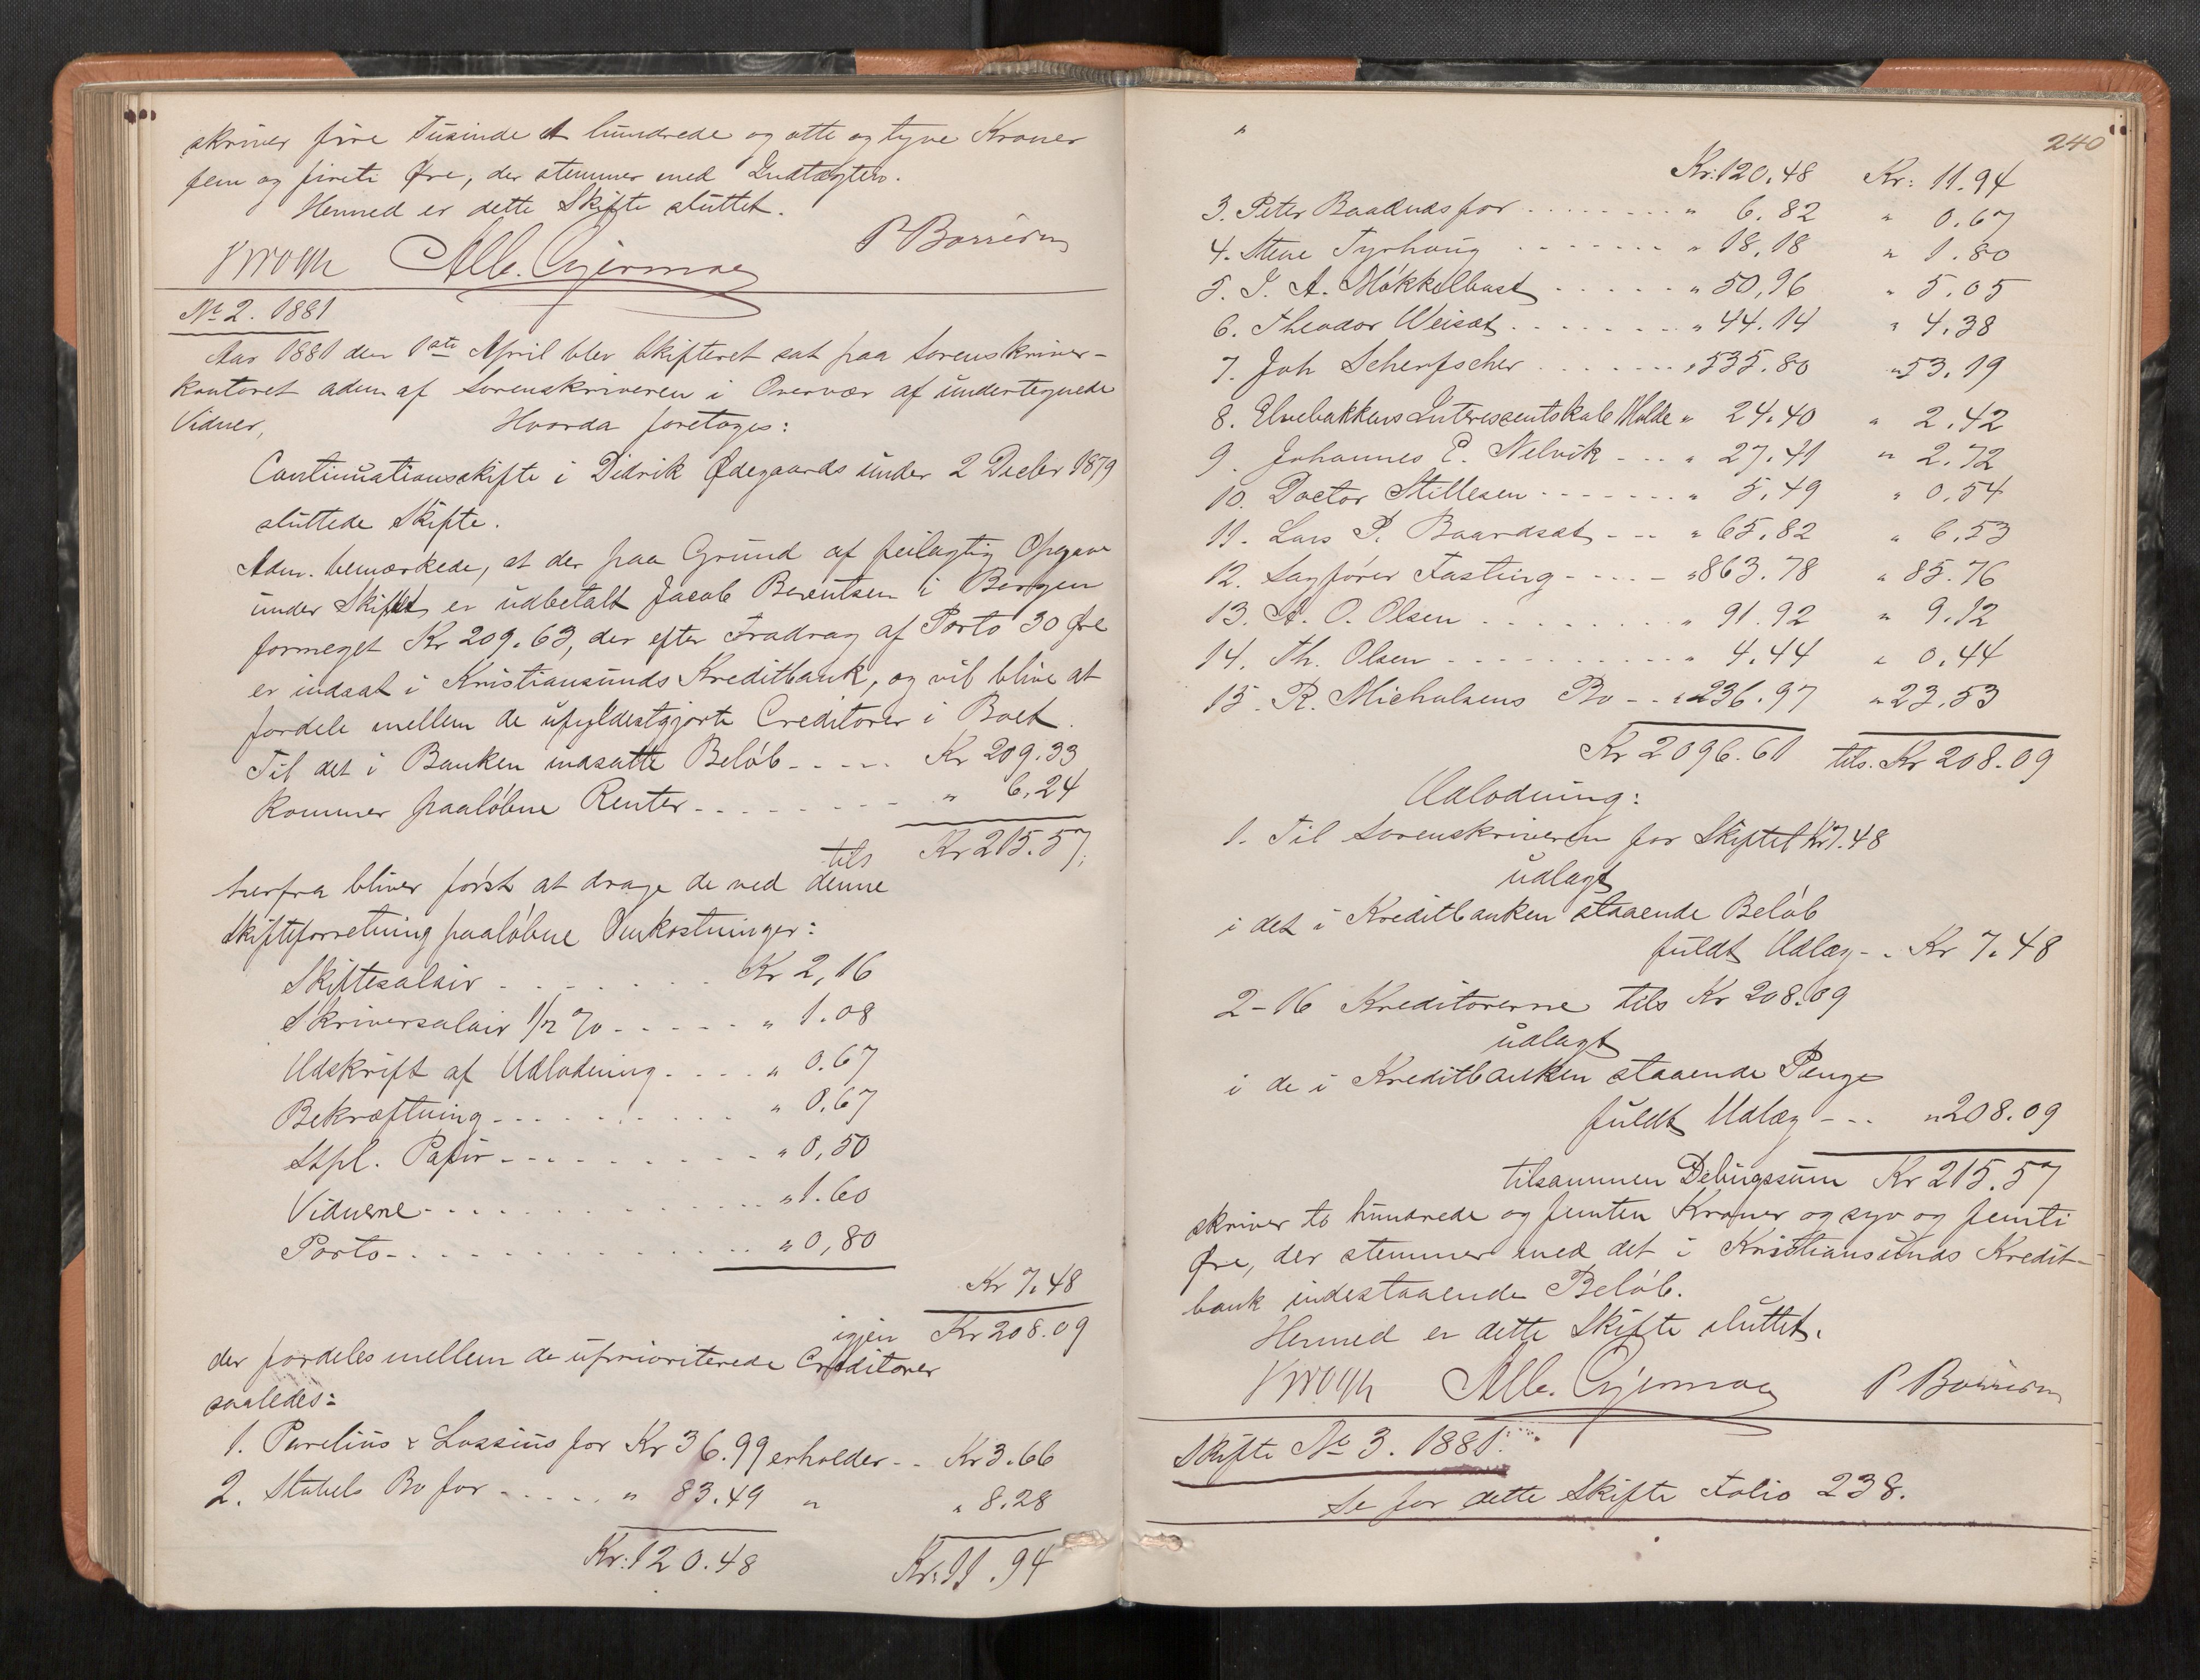 skriver fire Tusinde et hundrede og otte og tyve Kroner
fem og firti Øre, der stemmer med Indtægten.
Hermed er dette Skifte sluttet.
Krogh Alb. Gjörmoe P Börresen
No 2. 1881
Aar 1881 den 1ste April blev Skifteret sat paa Sorenskriver-
kontoret adm af Sorenskriveren i Overvær af undertegnede
Vidner, Hvorda foretoges:
Continuationsskifte i Didrik Ødegaards under 2 Decbr 1879
sluttede Skifte.
Adm. bemærkede, at der paa Grund af feilagtig Opgave
under Skiftet er udbetalt Jacob Berentsen i Bergen
formeget Kr 209.63, der efter Fradrag af Porto 30 Øre
er indsat i Kristiansunds Kreditbank, og vil blive at
fordele mellem de ufyldestgjorte Creditorer i Boet.
Til det i Banken indsatte Beløb - - - - - Kr 209.33
kommer paaløbne Renter - - - - - - - - " 6.24
tils Kr 215.57;
herfra bliver først at drage de ved denne
Skifteforretning paaløbne Omkostninger:
Skiftesalair - - - - - - - Kr 2,16
Skriversalair 1/2 % - - - - - " 1.08
Udskrift af Udlodning - - - - " 0.67
Bekræftning - - - - - - - - " 0.67
Stpl. Papir - - - - - - - - - " 0,50
Vidnerne - - - - - - - - - - " 1.60
Porto - - - - - - - - - - - - " 0,80
Kr 7.48
igjen Kr 208.09
der fordeles mellem de uprioriterede Creditorer
saaledes:
1. Parelius & Lossius for Kr 36.99 erholder - - Kr 3.66
2. Stabels Bo for - - - - - " 83.49 " " 8.28
Kr: 120.48 Kr: 11.94
240
Kr: 120.48 Kr: 11.94
3. Peter Baadnes for - - - - - - - " 6.82 " 0.67
4. Stene Tyrhoug - - - - - - - " 18,18 " 1.80
5. I. A. Møkkelbust - - - - - " 50,96 " 5.05
6. Theodor Weisæt - - - - - - - " 44.14 " 4,38
7. Joh Scherfscher - - - - - - " 535.80 " 53.19
8. Elvebakkens Interessentskab Molde " 24.40 " 2.42
9. Johannes E. Nelvik - - - " 27.41 " 2.72
10. Doctor Stillesen - - - - - - - " 5.49 " 0.54
11. Lars P. Baardsæt - - - " 65,82 " 6,53
12. Sagfører Fasting - - - - - " 863.78 " 85.76
13. A. O. Olsen - - - - - - - - - " 91.92 " 9.12
14. Th. Olsen - - - - - - - - - - - " 4.44 " 0.44
15. R. Michalsens Bo - - " 236.97 " 23,53
Kr 2096.61 tils. Kr 208.09
Udlodning:
1. Til Sorenskriveren for Skiftet Kr 7.48
udlagt
i det i Kreditbanken staaende Beløb
fuldt Udlæg - - Kr 7.48
2-16 Kreditorerne tils Kr 208.09
udlagt
i de i Kreditbanken staaende Penge
fuldt Udlæg - - - " 208.09
tilsammen Delingssum Kr 215.57
skriver to hundrede og femten Kroner og syv og femti
Øre, der stemmer med det i Kristiansunds Kredit-
bank indestaaende Beløb.
Hermed er dette Skifte sluttet.
Krogh Alb. Gjörmoe P Börresen
Skifte No 3. 1881.
Se for dette Skifte Folio 238.